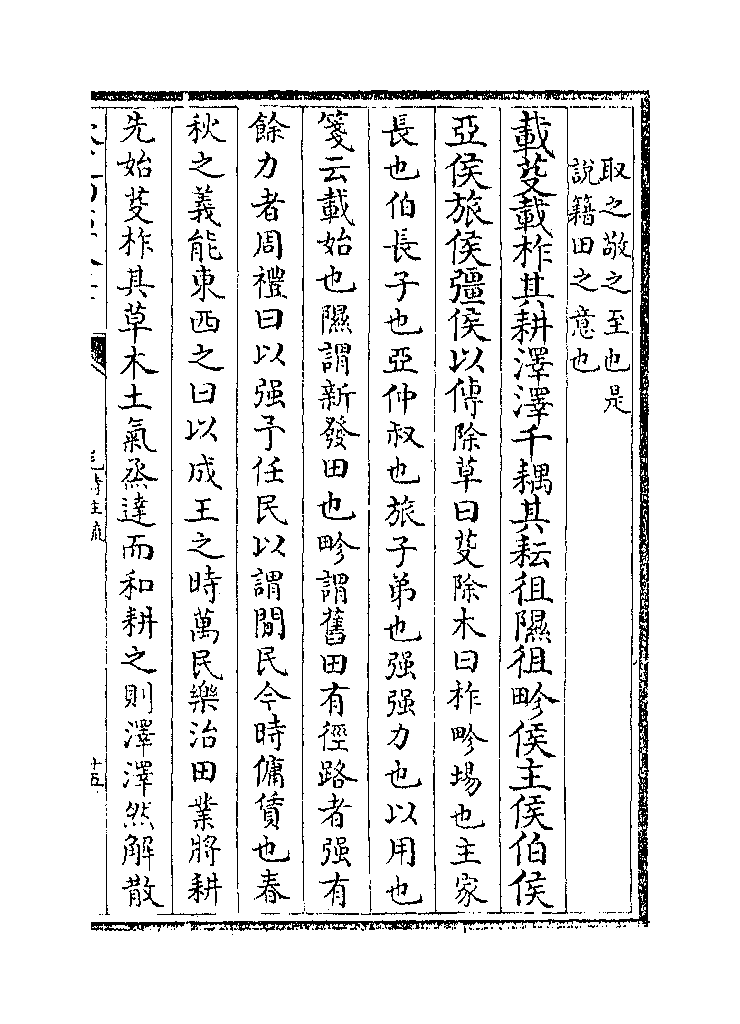 取之敬之至也是
說籍田之意也
載芟載柞其耕澤澤千耦其耘徂隰徂畛侯主侯伯侯
亞侯旅侯彊侯以傳除草曰芟除木曰柞畛場也主家
長也伯長子也亞仲叔也旅子弟也强强力也以用也
箋云載始也隰謂新發田也畛謂舊田有徑路者强有
餘力者周禮曰以强予任民以謂閒民今時傭賃也春
秋之義能東西之曰以成王之時萬民樂治田業將耕
先始芟柞其草木土氣烝達而和耕之則澤澤然解散
毛詩注疏
十五